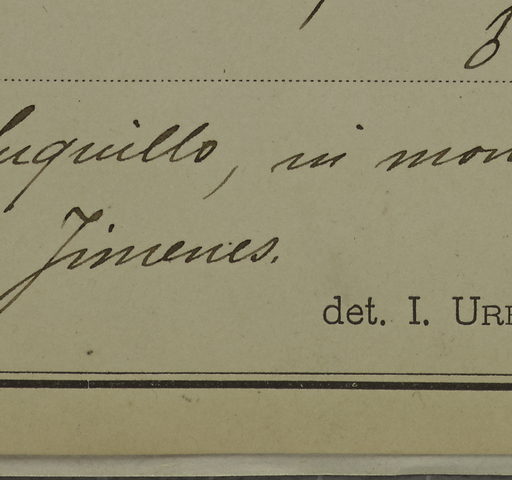 uquillo, in mon
Jimenes.
det. I. URB